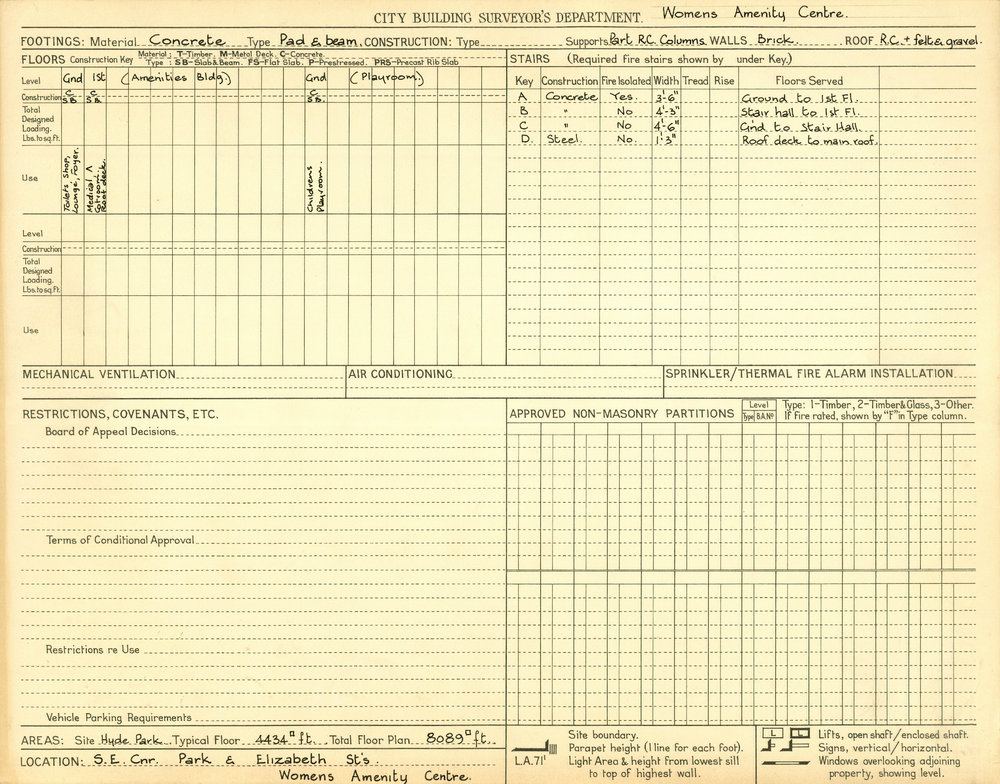 CITY BUILDING SURVEYOR'S DEPARTMENT. Womens Amenity Centre.
FOOTINGS: Material Concrete Type Pad & beam, CONSTRUCTION: Type Supports Part R.C. Columns WALLS Brick. ROOF R.C. + felt & gravel.
FLOORS Construction Key Material: T-Timber. M-Metal Deck. C-Concrete.
Type : SB-Slab&Beam. FS-Flat Slab. P-Prestressed. PRS-Precast Rib Slab
Level Gnd 1st (Amenities Bldg.) Gnd (Playroom.)
Construction C S.B. C S.B. C S.B.
Total Designed Loading. Lbs. to sq. ft.
Use Toilets, Shop, Lounge, Foyer. Medical & Cot room. Roof deck. Childrens Playroom.
Level
Construction
Total Designed Loading. Lbs. to sq. ft.
Use
STAIRS (Required fire stairs shown by under Key.)
Key Construction Fire Isolated Width Tread Rise Floors Served
A Concrete Yes. 3'-6" Ground to 1st Fl.
B " No 4'-3" Stair hall to 1st Fl.
C " No 4'-6" Gnd to Stair Hall.
D. Steel. No. 1'-3" Roof deck to main roof.
MECHANICAL VENTILATION AIR CONDITIONING SPRINKLER/THERMAL FIRE ALARM INSTALLATION
RESTRICTIONS, COVENANTS, ETC.
Board of Appeal Decisions
Terms of Conditional Approval
Restrictions re Use
Vehicle Parking Requirements
APPROVED NON-MASONRY PARTITIONS Level Type B.A.Nº Type: 1-Timber, 2-Timber&Glass, 3-Other.
If fire rated, shown by "F" in Type column.
AREAS: Site Hyde Park Typical Floor 4434 □ ft. Total Floor Plan 8089 □ ft.
LOCATION: S.E. Cnr. Park & Elizabeth St's.
Womens Amenity Centre.
Site boundary.
Parapet height (1 line for each foot).
L.A.71' Light Area & height from lowest sill
to top of highest wall.
L L Lifts, open shaft/enclosed shaft.
Signs, vertical/horizontal.
Windows overlooking adjoining
property, showing level.